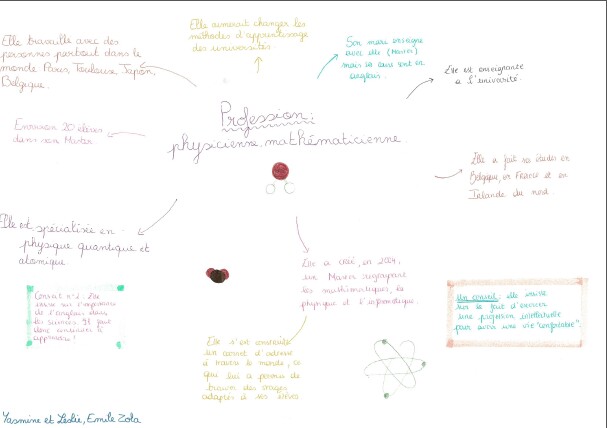 Elle aimerait changer les
méthodes d'apprentissage
des universités.
Elle travaille avec des
personnes partout dans le
monde Paris, Toulouse, Japon,
Belgique.
Son mari enseigne
avec elle (Master)
mais les cours sont en
anglais.
Elle est enseignante
à l'université.
Profession:
physicienne, mathématicienne
Environ 20 élèves
dans son Master.
Elle a fait ses études en
Belgique, en France et en
Irlande du nord.
Elle est spécialisée en
physique quantique et
atomique
Elle a créé, en 2004,
un Master regroupant
les mathématiques, la
physique et l'informatique.
Conseil n°2: Elle
insiste sur l'importance
de l'anglais dans
les sciences. Il faut
donc continuer à
apprendre!
Un conseil: elle insiste
sur le fait d'exercer
une profession
pour avoir une vie "confortable"
Elle s'est construite
un carnet d'adresse
à travers le monde, ce
qui lui a permis de
trouver des stages
adaptés à ses élèves
Yasmine et Leslie, Emile Zola